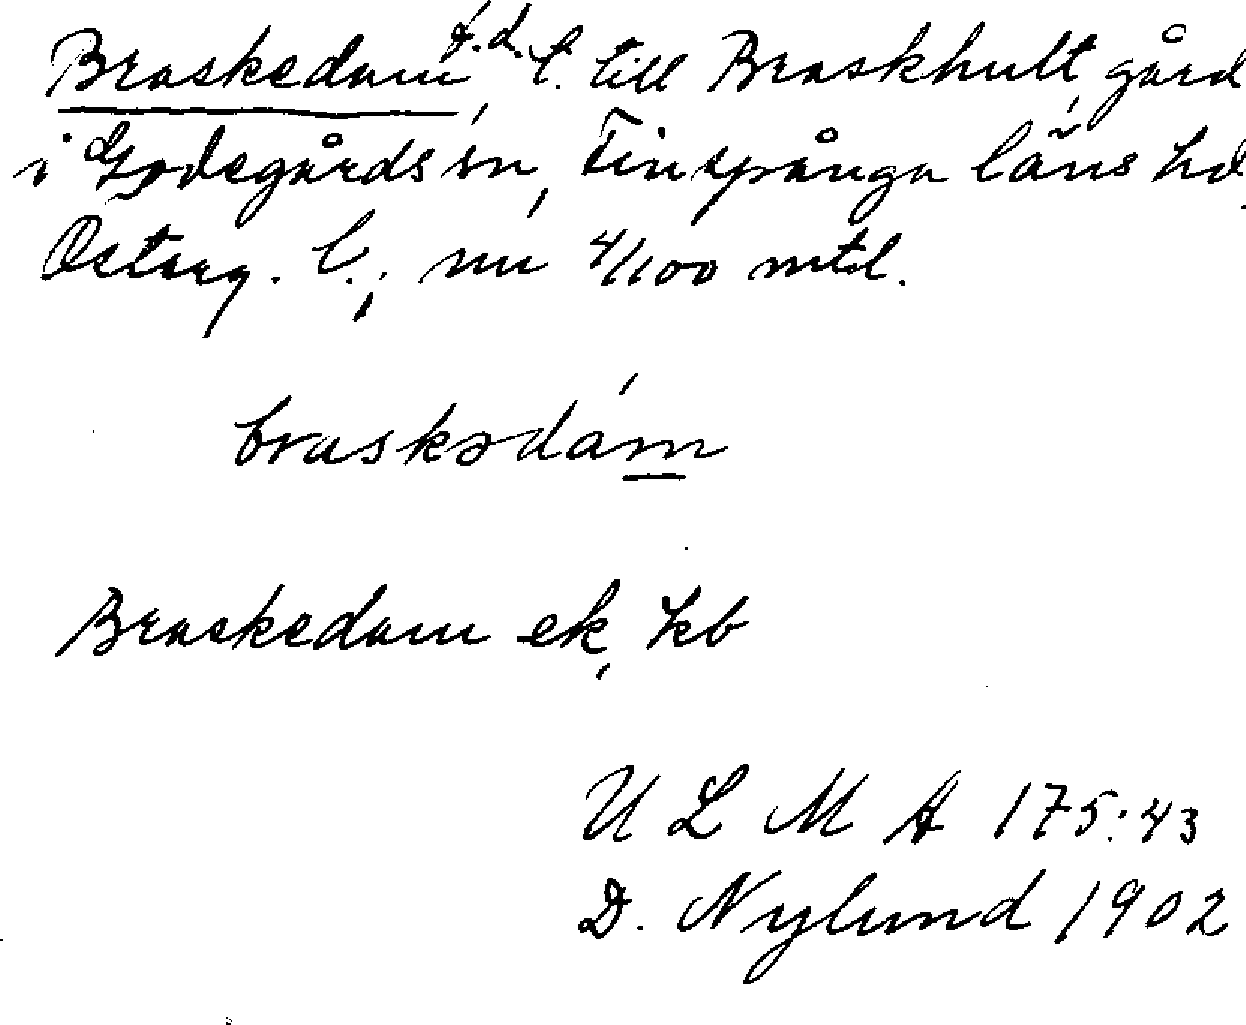 Braskedam, f.d. t. till Braskhult, gård
i Godegårds sn, Finspånga läns hd
Österg. l.; nu 4/100 mtl.
braskədám
Braskedam ek, kb
U L M A 175:43
D. Nylund 1902